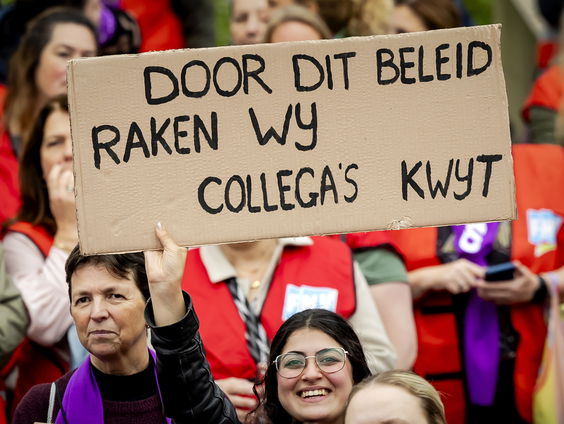 DOOR DIT BELEID
RAKEN WY
COLLEGA'S KWYT